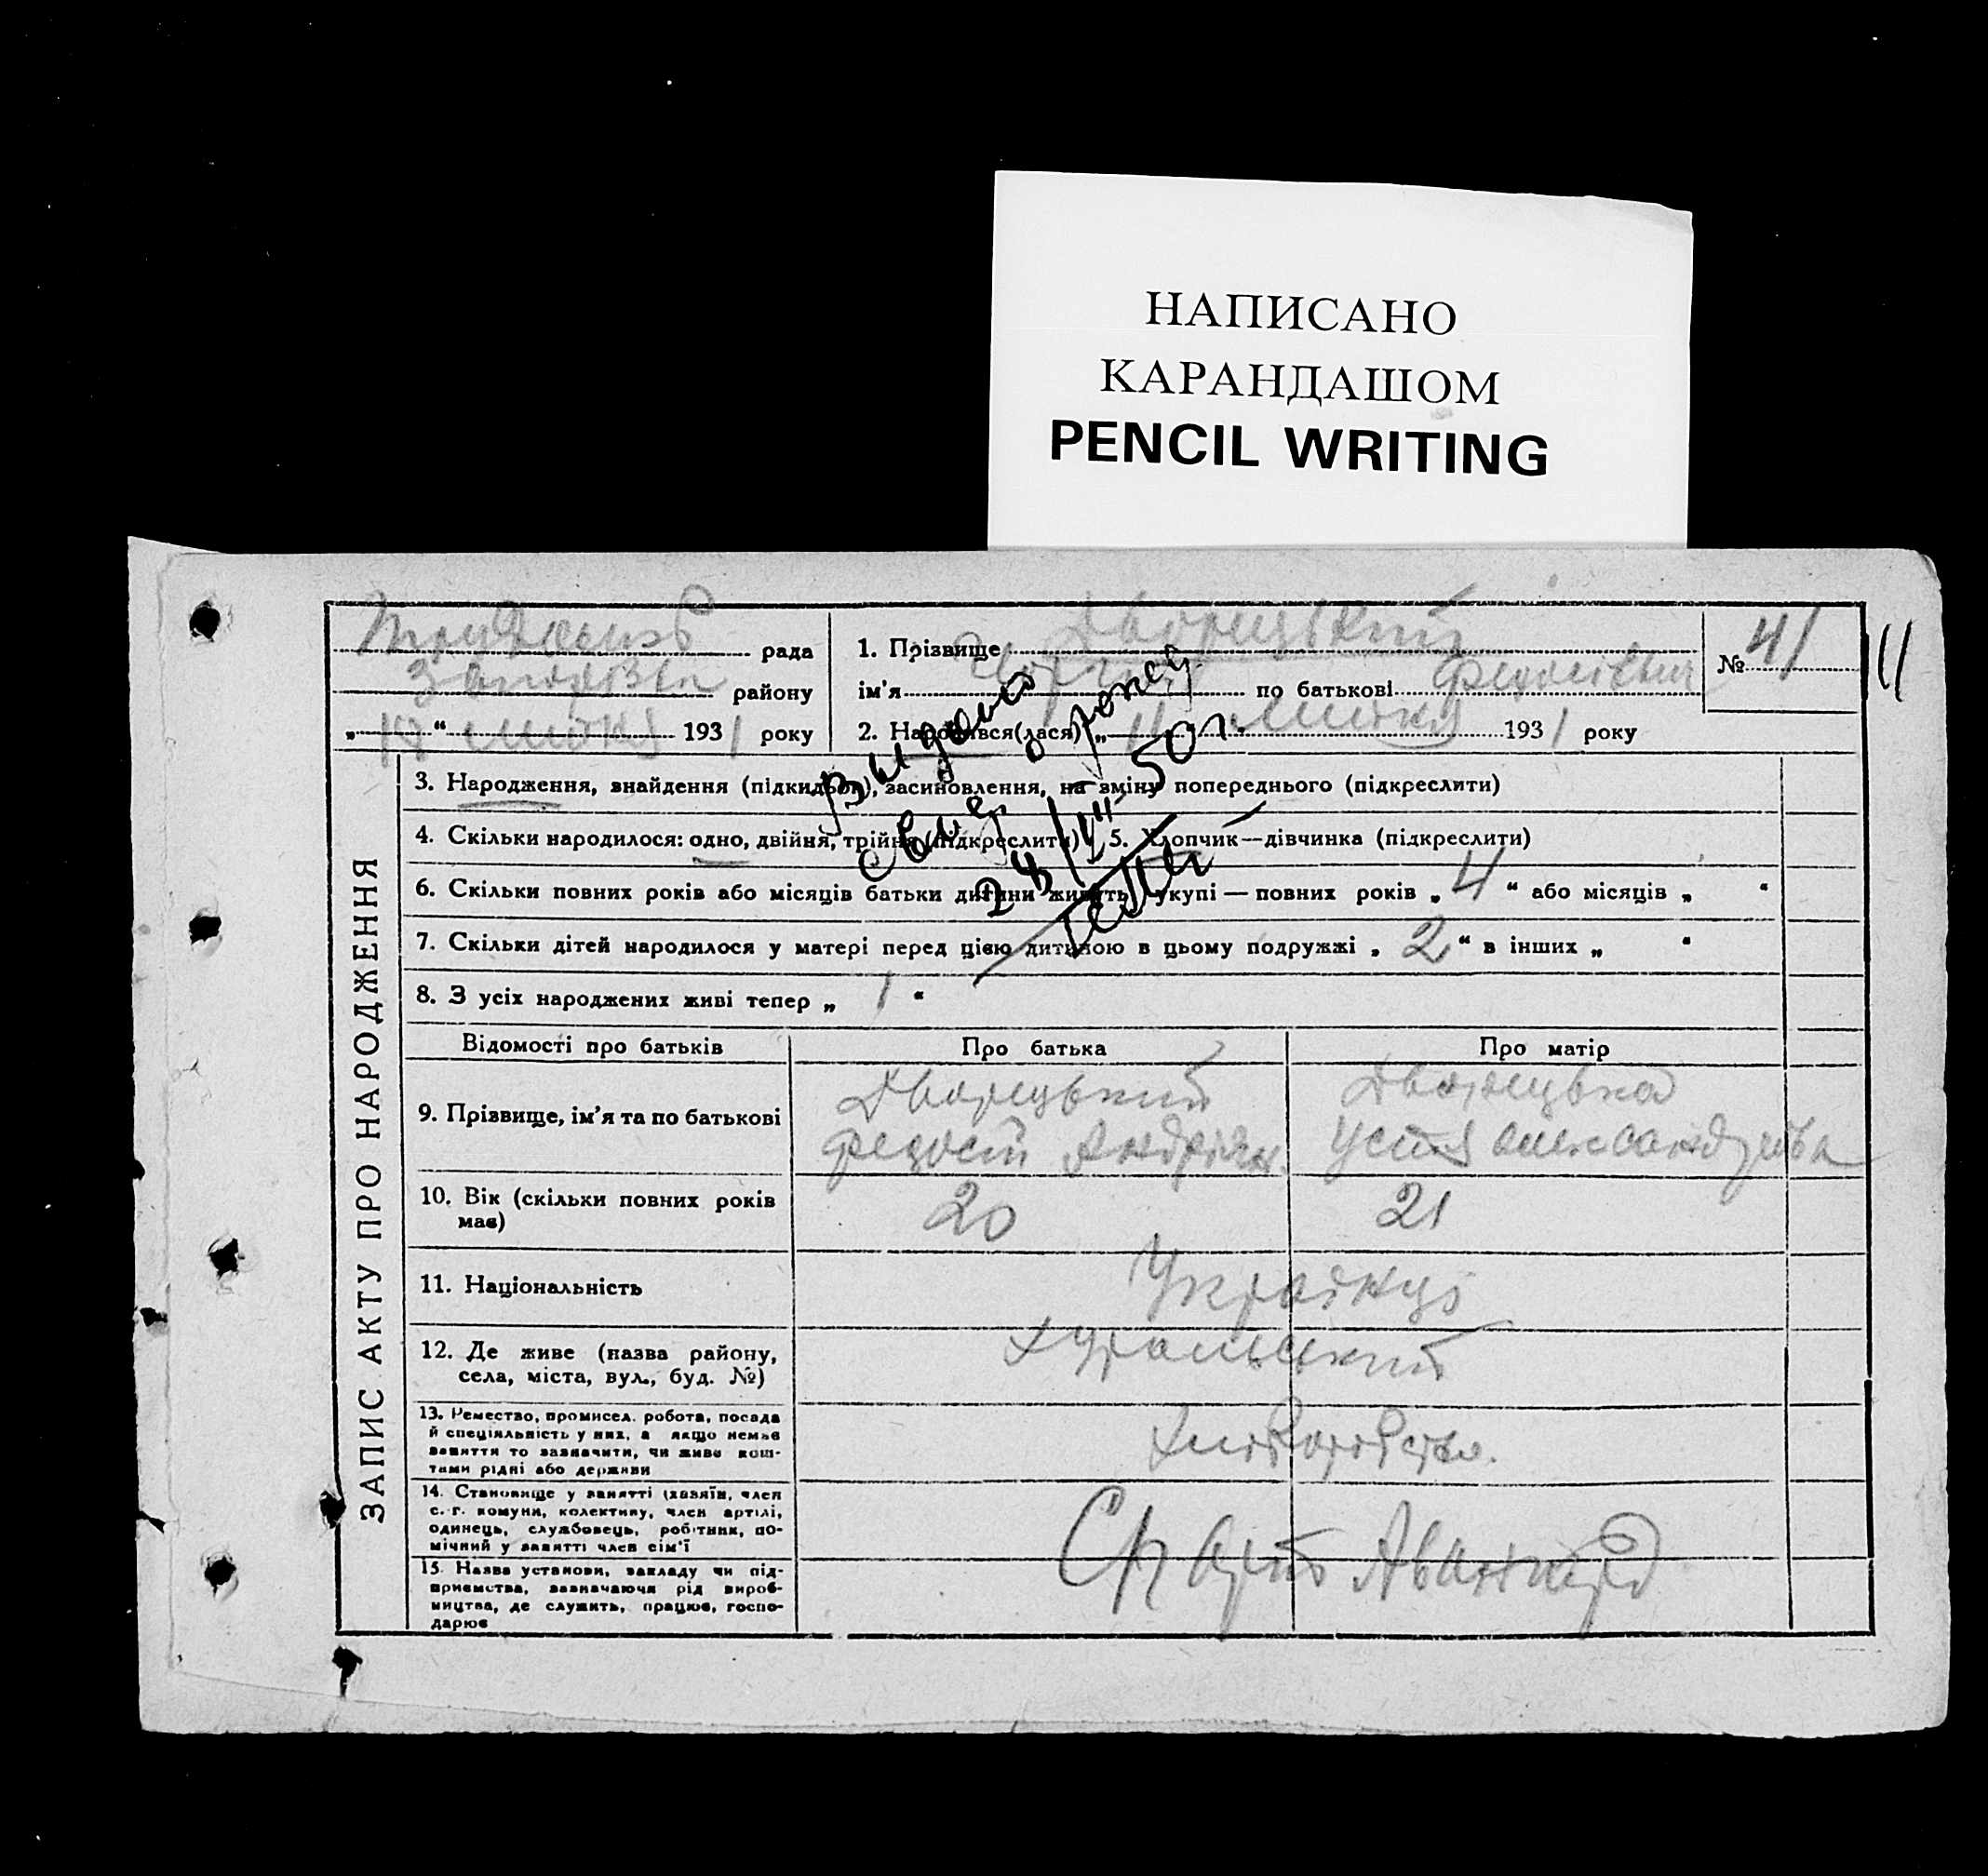 НАПИСАНО
КАРАНДАШОМ
PENCIL WRITING
рада
району
" 1931 року
1. Прізвище Дворецький
№ 41
11
ім'я по батькові
2. Народився(лася) „ 11 1931 року
ЗАПИС АКТУ ПРО НАРОДЖЕННЯ
3. Народження, знайдення (підкидьок), засиновлення, на зміну попереднього (підкреслити)
4. Скільки народилося: одно, двійня, трійня (підкреслити) 5. Хлопчик—дівчинка (підкреслити)
6. Скільки повних років або місяців батьки дитини живуть укупі — повних років „ 4 " або місяців „ "
7. Скільки дітей народилося у матері перед цією дитиною в цьому подружжі „ 2 " в інших „ "
8. З усіх народжених живі тепер „ 1 "
Выдано
свид. о рожд.
50 г.
Відомості про батьків Про батька Про матір
9. Прізвище, ім'я та по батькові
Дворецький
Дворецька
Устя Олександрівна
10. Вік (скільки повних років має) 20 21
11. Національність Українці
12. Де живе (назва району, села, міста, вул., буд. №)
13. Ремество, промисел, робота, посада й спеціяльність у них, а якщо немає заняття то зазначити, чи живе коштами рідні або держави
Хліборобство.
14. Становище у занятті (хазяїн, член с.-г. комуни, колективу, член артілі, одинець, службовець, робітник, помічний у занятті член сім'ї
15. Назва установи, закладу чи підприємства, зазначаючи рід виробництва, де служить, працює, господарює
Авангард